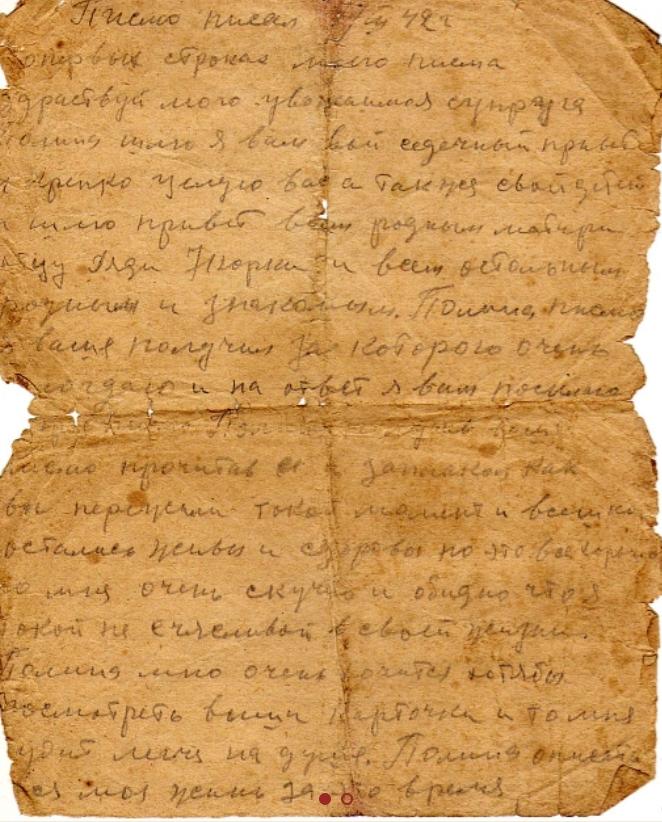 Писмо писал 42 г
первых строках моего писма
здраствуй мого уважаимоя супруга
Полина шлю я вам свой седечный привет
и крепко целую вас а также своих детей
и шлю привет всем родным матери
отцу дяди и всем остальным
родным и знакомым. Полина писмо
ваше получил за которого очень
и на ответ я вам посылаю
писмо прочитав ее и заплакол как
вы пережили токой момент и все
осталися живы и сдоровы но это все хорошо
но мня очень скучно и обидно что я
токой не счасливой в своей жизни.
Полина мно очень хочится хотябы
посмотреть ваши карточки и то мня
будит легче на душе. Полина описать
вся моя жизнь за это время